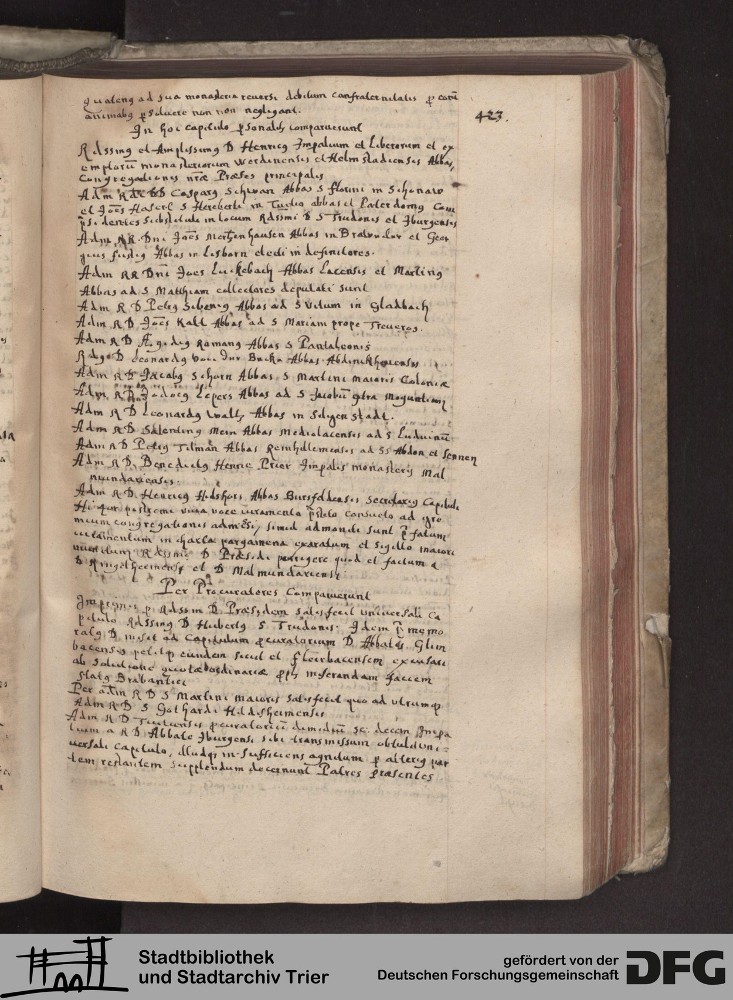 quatenq ad sua monasteria reversi debitum confraternitatis p eorū
animabq psolvere non non negligant.
423.
In hoc capitulo psonalit comparuerunt
Rdssimq et Amplissimq D Henricq Impalium et Liberorum et ex
emptorū monasteriorum Werdinensis et Helmstadiensis Abbas,
Congregationis nrae Praeses principalis
Adm Rdq D Casparq Schwan Abbas S Florini in Schonaw
et Joēs Haserl S Hereberti in Tuitio abbas et Paterdorm Com
psidentes substituti in locum Rdssimi D S Trudonis et Iburgensis
Adm RR Dni Joēs Mertzenhausen Abbas in Brawiler et Geor
gius Abbas in Lisborn electi in definitores.
Adm RR Dni Joes Luckebach Abbas Lacensis et Martinq
Abbas ad S Matthiam collectores deputati sunt
Adm R D Petrq Abbas ad S Vitum in Gladbach
Adm R D Joēs Kall Abbas ad S Mariam prope Treveros.
Adm R D Aegidiq Romanq Abbas S Pantaleonis
Rdq D Leonardq Abbas Abdinckhovensis
Adm R D Jacobq Schorn Abbas S Martini maioris Coloniae
Adm R D Jodocq Lepers Abbas ad S Jacobū extra Moguntiam
Adm R D Leonardq Walz Abbas in Seligenstadt.
Adm R D Salentinq Abbas Mediolacensis ad S Luduinū
Adm R D Petrq Tilman Abbas Reinhillemensis ad SS Abdon et Sennen
Adm R D Benedictq Henric Prior Impalis monasterij Mal
mundariensis.
Adm R D Henricq Abbas Bursfeldensis Secretariq Capituli
Hi qui postremi viva voce iuramento pstito consueto ad gre
mium congregationis admissi, simul admoniti sunt p fatum
iuramentum in charta pargamena exaratum et sigillo maiore
munitum Rdssimo D Praesidi porrigere quod et factum a
D Ringelheimensi et D Malmundariensi
Per Procuratores Comparuerunt
Imprimis p Rdssim D Praesidem satisfecit universali Ca
pitulo Rdssimq D Hubertq S Trudonis. Idem p memo
ratq D misit ad Capitulum pcuratorium D. Abbatis Glem
bacensis petijtq eundem sicut et Florbacensem excusari
ab solutione quotae ordinariae ppt miserandam faciem
statq Brabantici
Per adm R D S Martini maioris satisfecit quo ad utrumq
Adm R D S Gothardi Hildesheimensis
Adm R D Tuitiensis pcuratoriū sc. decem Impa
lium a R D Abbate Iburgensi sibi transmissum obtulit uni=
versali Capitulo, illudq in-sufficiens agnitum p alteriq par
tem restantem supplendum decernunt Patres praesentes
Stadtbibliothek
und Stadtarchiv Trier
gefördert von der
Deutschen Forschungsgemeinschaft
DFG